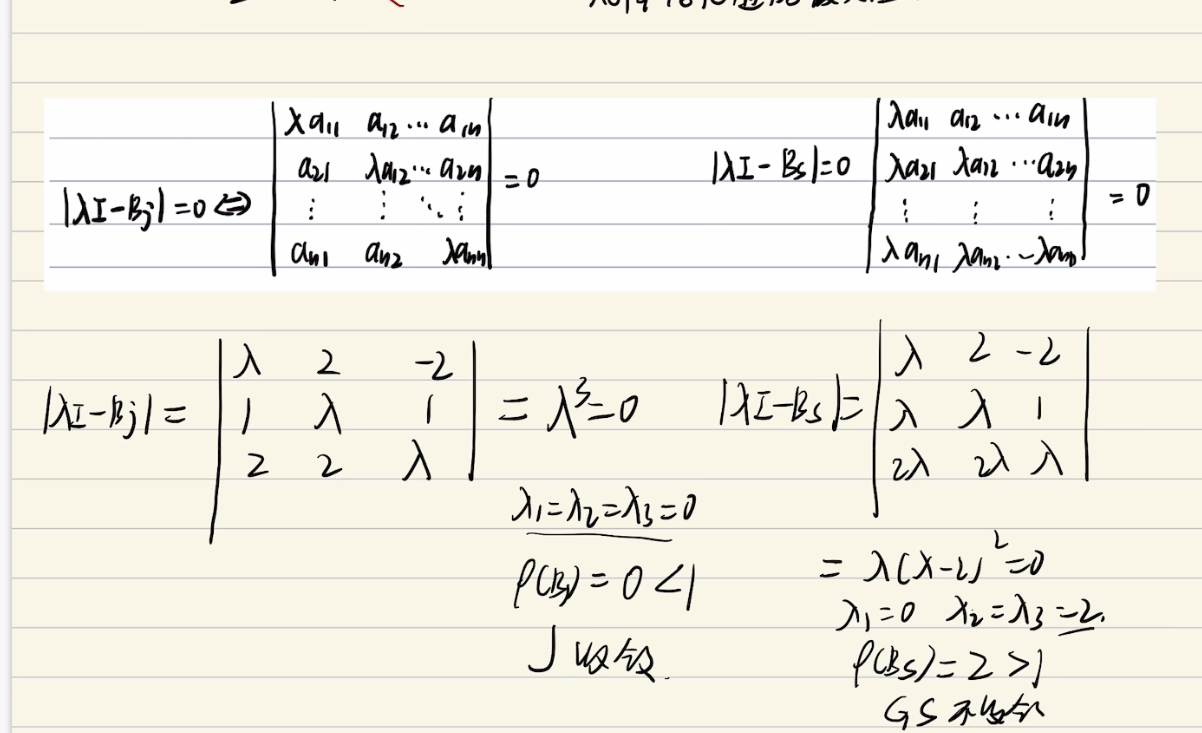 |λI-Bj|=0 ⇔ | λa₁₁ a₁₂ ⋯ a₁ₙ | = 0
| a₂₁ λa₁₂ ⋯ a₂ₙ |
| ⋮ ⋮ ⋱ ⋮ |
| aₙ₁ aₙ₂ λaₙₙ |
|λI-Bs|=0 | λa₁₁ a₁₂ ⋯ a₁ₙ | = 0
| λa₂₁ λa₁₂ ⋯ a₂ₙ |
| ⋮ ⋮ ⋮ |
| λaₙ₁ λaₙ₂ ⋯ λaₙₙ |
|λI-Bj| = | λ 2 -2 | = λ³=0
| 1 λ 1 |
| 2 2 λ |
λ₁=λ₂=λ₃=0
ρ(Bj)=0<1
J收敛.
|λI-Bs|= | λ 2 -2 |
| λ λ 1 |
| 2λ 2λ λ |
= λ(λ-2)²=0
λ₁=0 λ₂=λ₃=2.
ρ(Bs)=2>1
GS不收敛